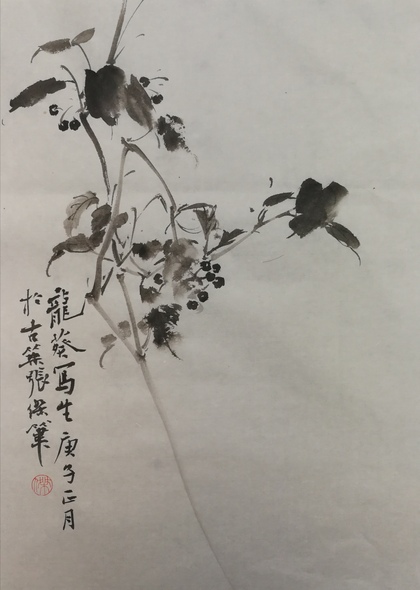 龍葵寫生庚子正月
於古築張傑筆